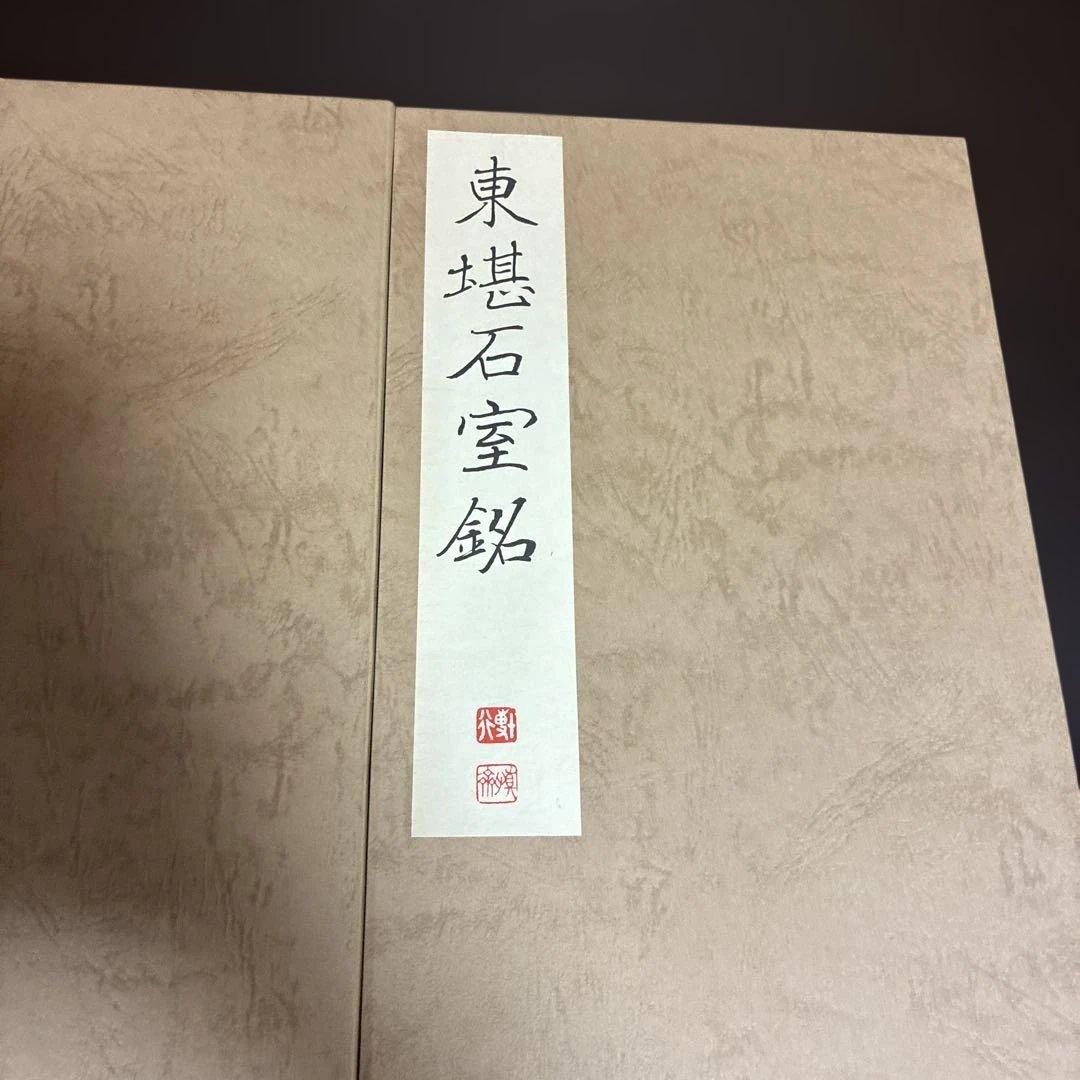 東堪石室銘